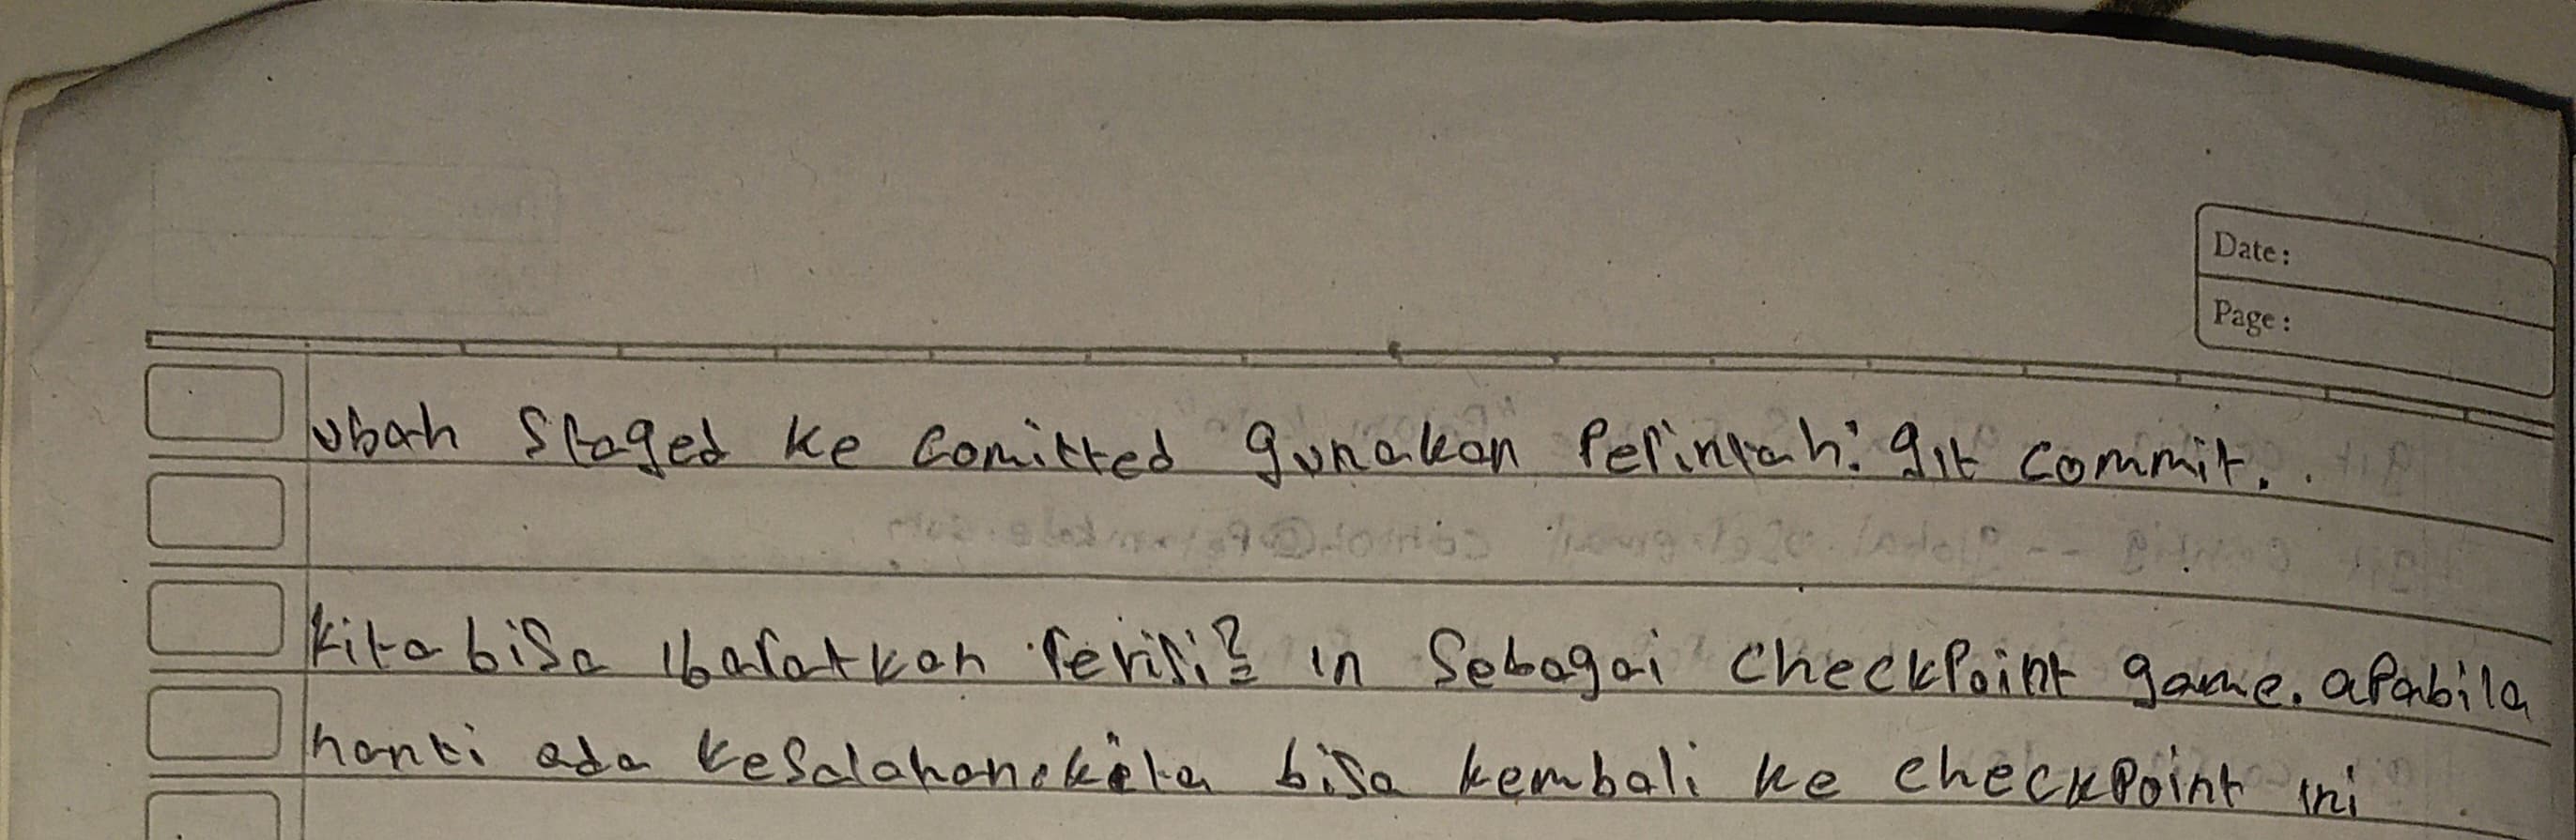 Date:
Page:
ubah Staged ke Comitted gunakan Perintah: git commit.
kita bisa ibaratkan revisi2 in Sebagai CheckPoint game. aPabila
nanti ada kesalahan.kita bisa kembali ke checkPoint ini